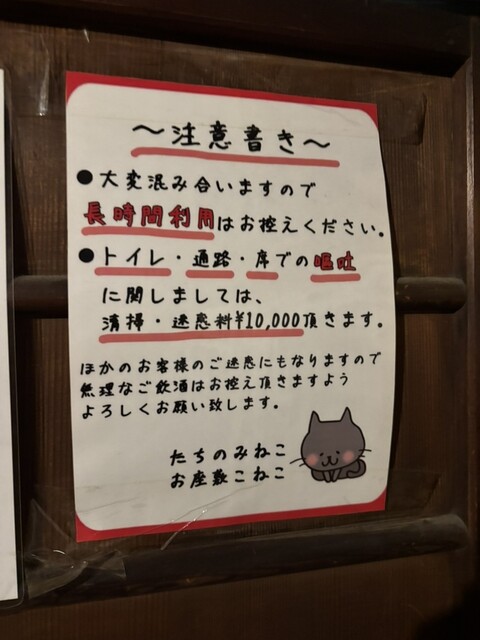 ～注意書き～
●大変混み合いますので
長時間利用はお控えください。
●トイレ・通路・席での嘔吐
に関しましては、
清掃・迷惑料¥10,000頂きます。
ほかのお客様のご迷惑にもなりますので
無理なご飲酒はお控え頂きますよう
よろしくお願い致します。
たちのみねこ
お座敷こねこ